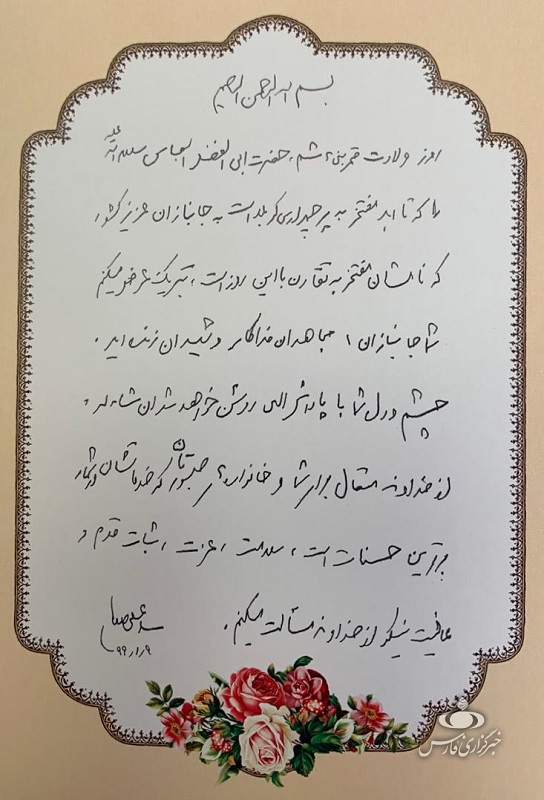 بسم الله الرحمن الرحیم
امروز ولادت قمر بنی‌هاشم، حضرت ابی الفضل العباس سلام‌الله علیه
را که تا ابد مفتخر به پرچمداری کربلاست به جانبازان عزیز کشور
که نامشان مفتخر به تقارن با این روز است، تبریک عرض میکنم
شما جانبازان، مجاهدان فداکار و شهیدان زنده‌اید.
چشم و دل شما با پاداش الهی روشن خواهد شد ان شاءالله.
از خداوند متعال برای شما و خانواده‌های صبورتان که خدماتشان در شمار
برترین حسنات است، سلامت، عزت، ثبات قدم و
عافیت نیکو از خداوند مسألت میکنم.
خبرگزاری فارس